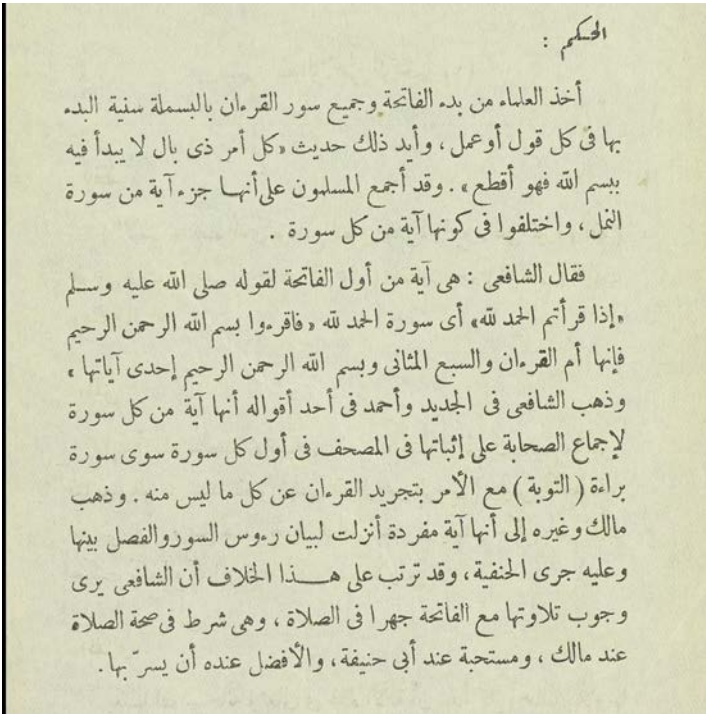 الحكم :
أخذ العلماء من بدء الفاتحة وجميع سور القرءان بالبسملة سنية البدء
بها فى كل قول أوعمل ، وأيد ذلك حديث «كل أمر ذى بال لا يبدأ فيه
ببسم الله فهو أقطع» . وقد أجمع المسلمون على أنها جزء آية من سورة
النمل ، واختلفوا فى كونها آية من كل سورة .
فقال الشافعى : هى آية من أول الفاتحة لقوله صلى الله عليه وسلم
«إذا قرأتم الحمد لله» أى سورة الحمد لله «فاقرءوا بسم الله الرحمن الرحيم
فإنها أم القرءان والسبع المثانى وبسم الله الرحمن الرحيم إحدى آياتها »
وذهب الشافعى فى الجديد وأحمد فى أحد أقواله أنها آية من كل سورة
لإجماع الصحابة على إثباتها فى المصحف فى أول كل سورة سوى سورة
براءة ( التوبة ) مع الأمر بتجريد القرءان عن كل ما ليس منه . وذهب
مالك وغيره إلى أنها آية مفردة أنزلت لبيان رءوس السور والفصل بينها
وعليه جرى الحنفية ، وقد ترتب على هــذا الخلاف أن الشافعى يرى
وجوب تلاوتها مع الفاتحة جهرا فى الصلاة ، وهى شرط فى صحة الصلاة
عند مالك ، ومستحبة عند أبى حنيفة ، والأفضل عنده أن يسرّ بها .